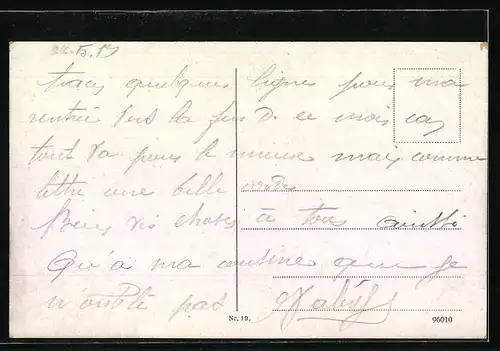 quelques lignes pour ma
rentrée vers la fin de ce mois car
tout va pour le mieux mais comme
lettre une belle
Bien des choses à tous ainsi
Qu'à ma cousine que je
n'oublie pas
Nr. 19.
96010